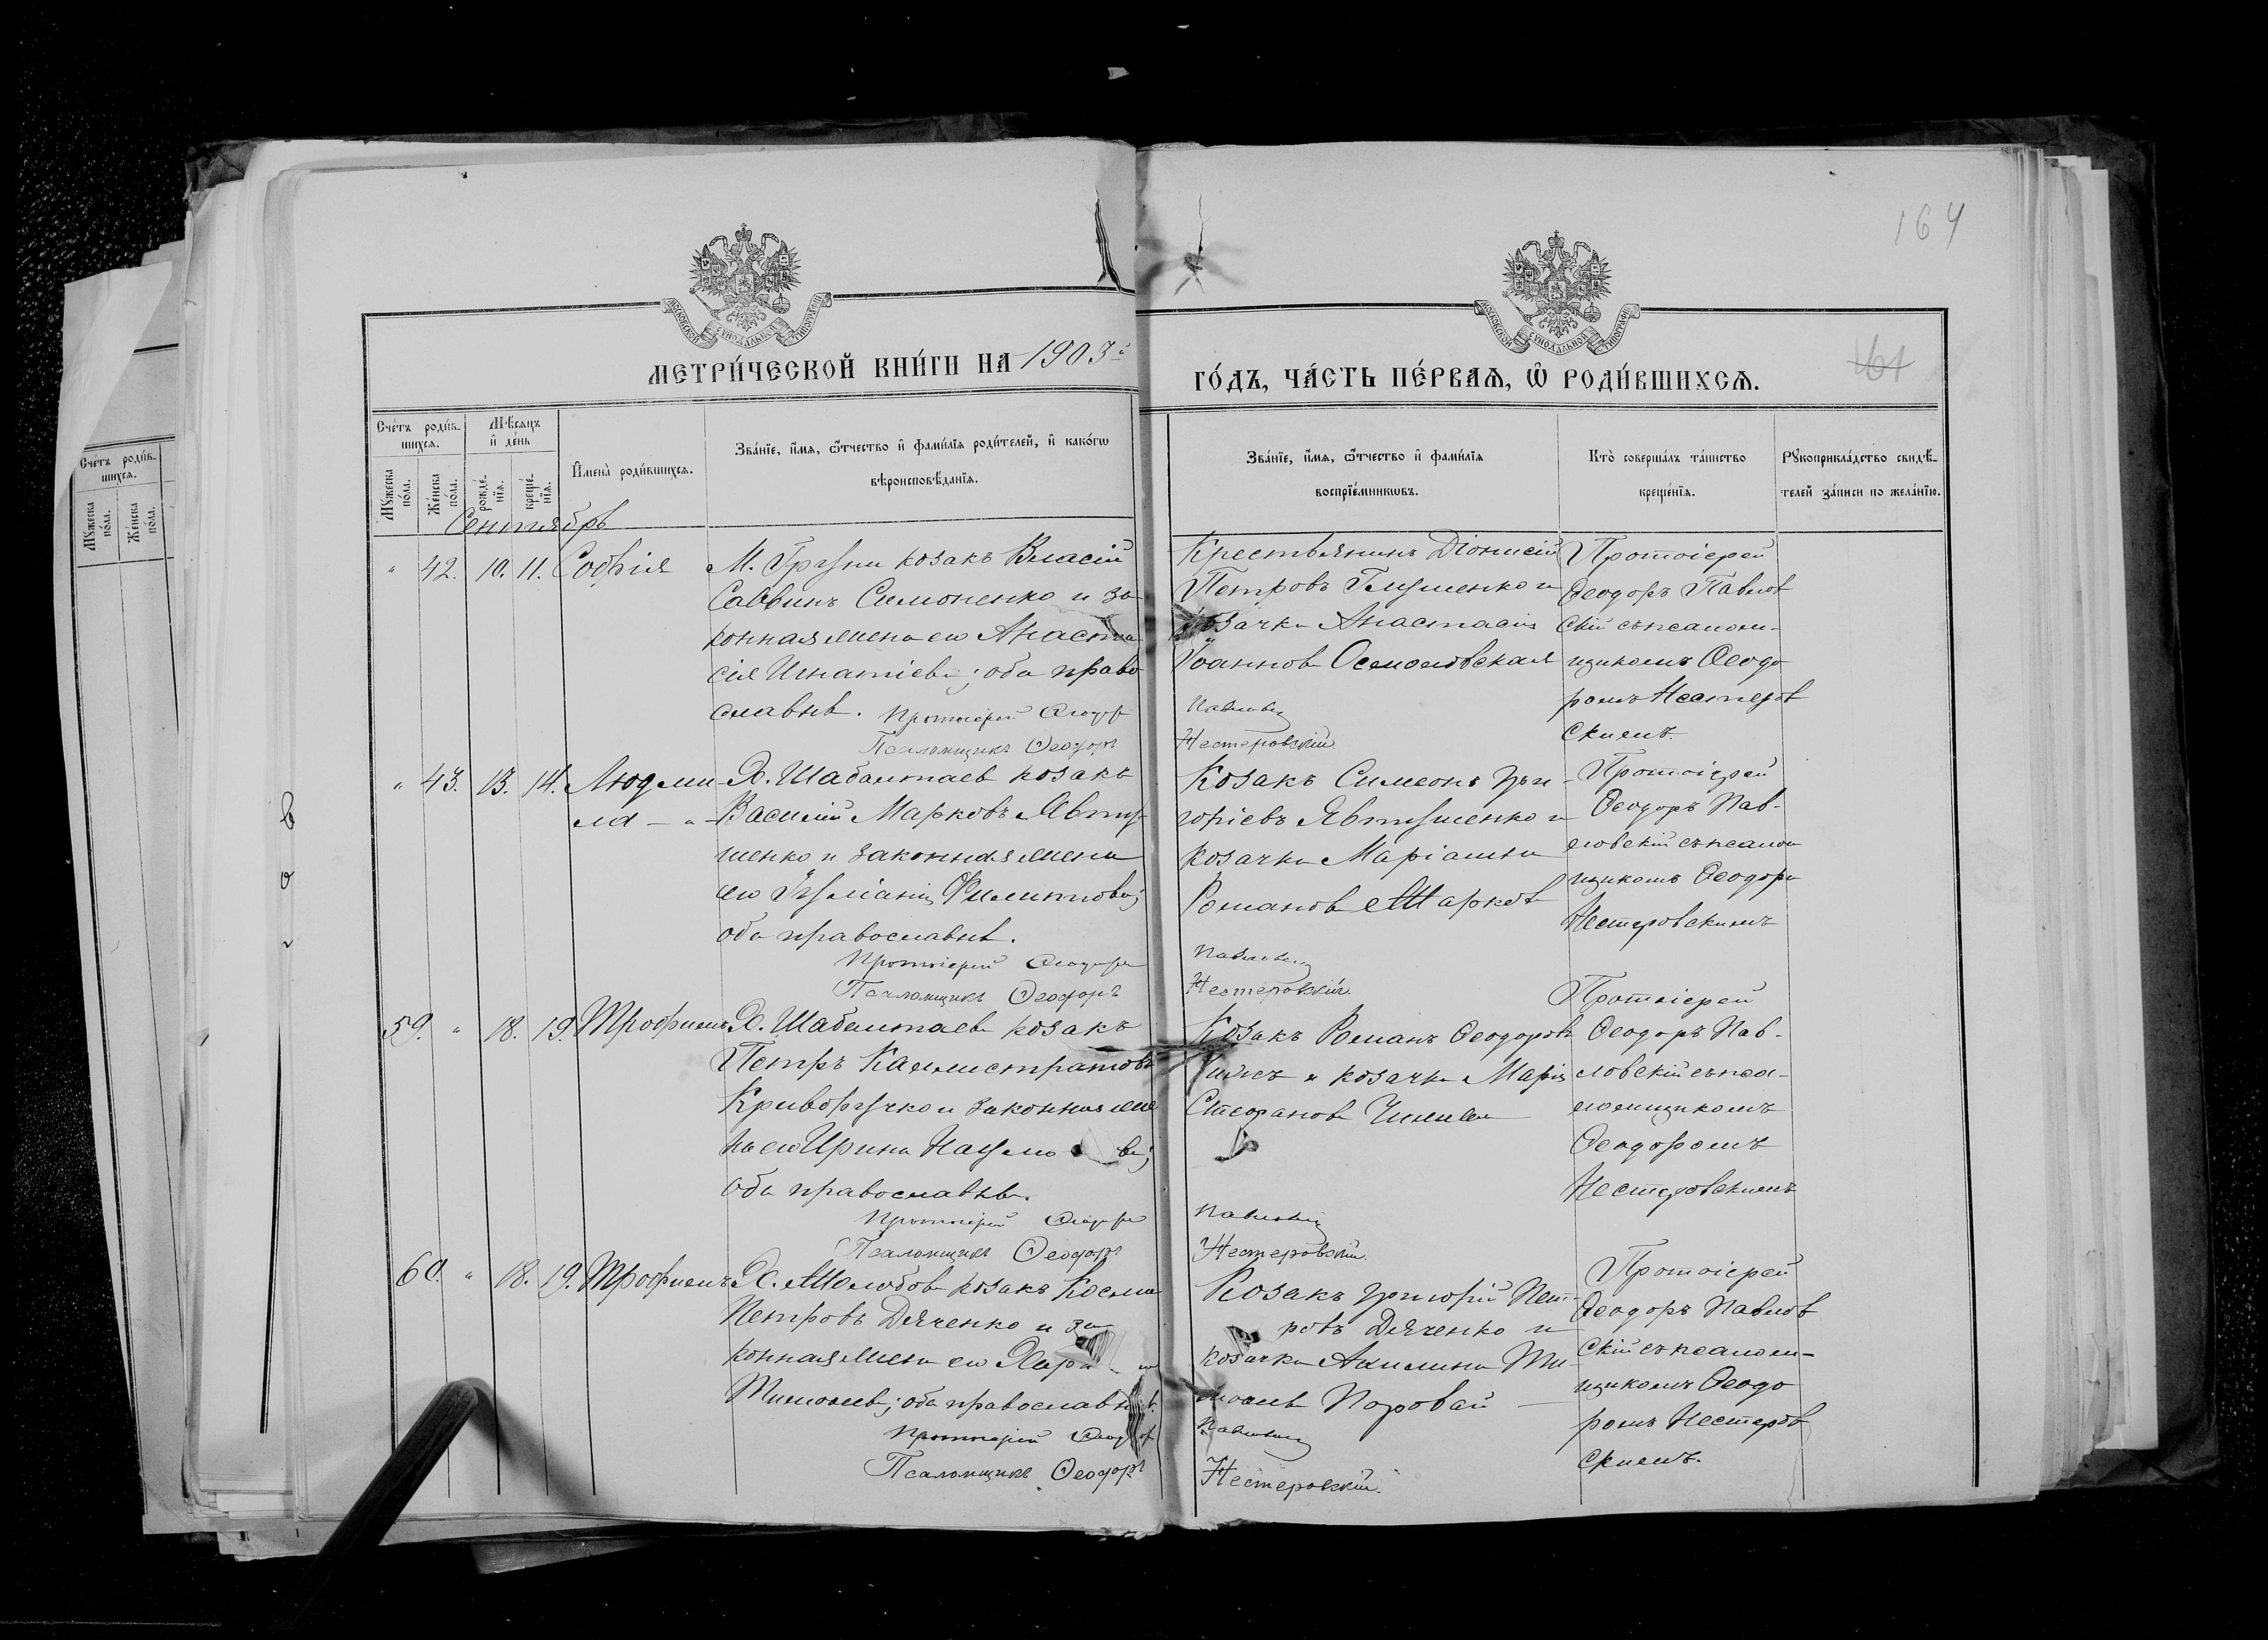 164
161
МОСКОВСКОЙ СУНОДАЛЬНОЙ ТИПОГРАФІИ
МОСКОВСКОЙ СУНОДАЛЬНОЙ ТИПОГРАФІИ
МЕТРИ́ЧЕСКОЙ КНИ́ГИ НА 1903й
ГО́ДЪ, ЧА́СТЬ ПЕ́РВАѦ, Ѡ҆ РОДИ́ВШИХСѦ.
Сче́тъ роди́в-
шихсѧ.
Мꙋ́жеска
по́ла.
Же́нска
по́ла.
Мѣ́сѧцъ
и҆ де́нь
рожде́-
нїѧ.
креще́-
нїѧ.
И҆мена̀ роди́вшихсѧ.
Зва́нїе, и҆́мѧ, ѻ҆́тчество и҆ фами́лїѧ роди́телей, и҆ како́гѡ
вѣроисповѣ́данїѧ.
Зва́нїе, и҆́мѧ, ѻ҆́тчество и҆ фами́лїѧ
воспрїе́мникѡвъ.
Кто̀ соверша́лъ та́инство
креще́нїѧ.
Рꙋкоприкла́дство свидѣ́-
телей за́писи по жела́нїю.
Сче́тъ роди́в-
шихсѧ.
Мꙋ́жеска
по́ла.
Же́нска
по́ла.
Сентябрь
" 42. 10. 11. Софія
М. Груни козакъ Власій
Саввинъ Симоненко и за
конная жена его Анаста
сія Игнатіева; оба право
славные.
Протоіерей Ѳеодоръ
Псаломщикъ Ѳеодоръ
Крестьянинъ Діонисій
Петровъ Глущенко и
козачка Анастасія
Іоаннова Осмоловская
Павловскій
Нестеровскій.
Протоіерей
Ѳеодоръ Павлов
скій съ псалом-
щикомъ Ѳеодо
ромъ Нестеров
скимъ.
" 43. 13. 14. Людми-
ла
Х. Шабалтаева козакъ
Василій Марковъ Явту-
шенко и законная жена
его Іуліанія Филиппова;
оба православные.
Протоіерей Ѳеодоръ
Псаломщикъ Ѳеодоръ
Козакъ Симеонъ Гри-
горіевъ Явтушенко и
козачка Маріанна
Романова
Павловскій
Нестеровскій.
Протоіерей
Ѳеодоръ Пав-
ловскій съ псалом
щикомъ Ѳеодоро
Нестеровскимъ
59. " 18. 19. Трофимъ
Х. Шабалтаева козакъ
Петръ Каллистратовъ
Криворучко и законная же
на его Ирина Наумова;
оба православные.
Протоіерей Ѳеодоръ
Псаломщикъ Ѳеодоръ
Козакъ Романъ Ѳеодоровъ
и козачка Марія
Стефанова
Павловскій
Нестеровскій.
Протоіерей
Ѳеодоръ Пав-
ловскій съ пса-
ломщикомъ
Ѳеодоромъ
Нестеровскимъ
60. " 18. 19. Трофимъ
Х. козакъ Косма
Петровъ Дяченко и за
конная жена его
Тимоѳеева; оба православные.
Протоіерей Ѳеодоръ
Псаломщикъ Ѳеодоръ
Козакъ Григорій Пет-
ровъ Дяченко и
козачка Акилина Ти-
моѳеева
Павловскій
Нестеровскій.
Протоіерей
Ѳеодоръ Павлов
скій съ псалом-
щикомъ Ѳеодо
ромъ Нестеров
скимъ.